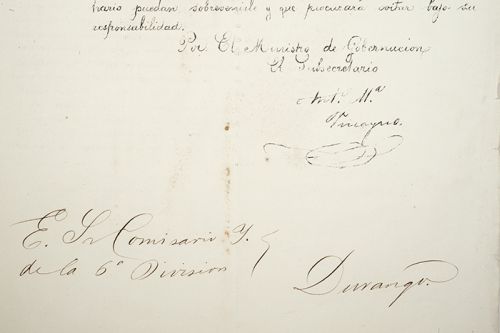 hario puedan sobrevenirle y que procurará evitar bajo su
responsabilidad.
Por El Ministro de Gobernacion
El Subsecretario
Ant.º M.ª
E. Sr Comisario I.
de la 6ª Division
Durango.